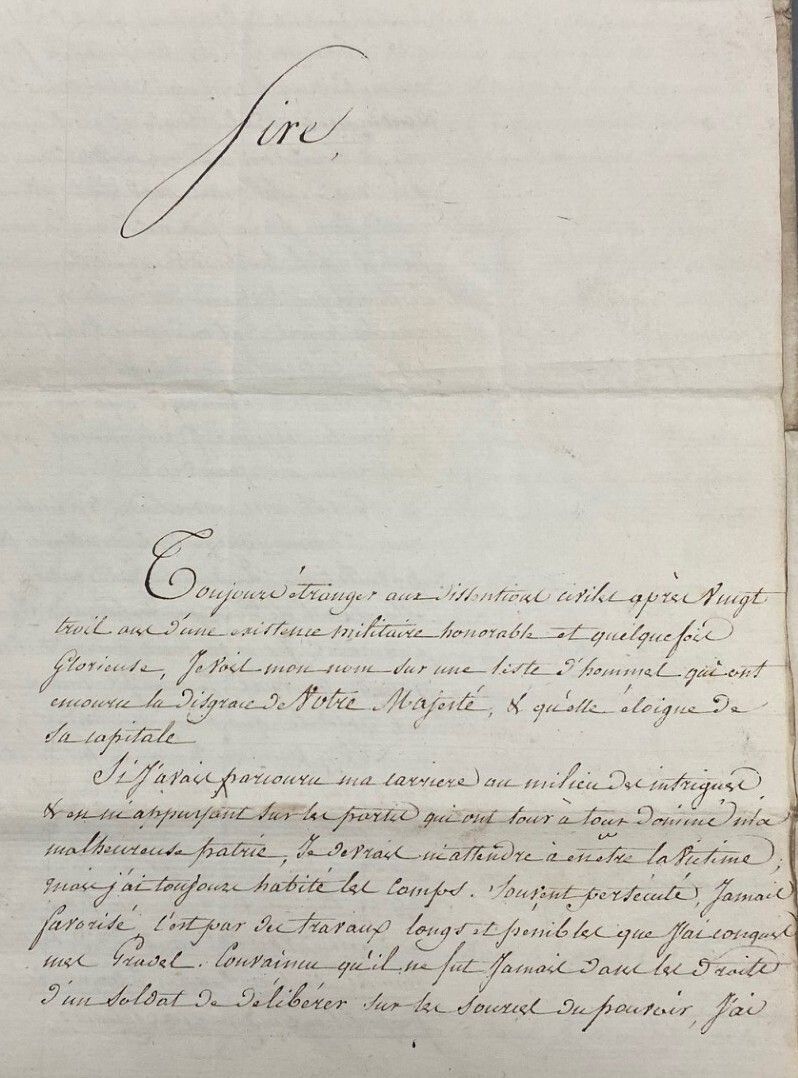 Sire,
Toujours étranger aux dissentions civiles après Vingt
trois ans d'une existence militaire honorable et quelquefois
Glorieuse, Je vois mon nom sur une liste d'hommes qui ont
encouru la disgrace de Votre Majesté, & qu'elle éloigne de
sa capitale
Si J'avais parcouru ma carriere au milieu des intrigues
& en m'appuyant sur les partis qui ont tour à tour dominé ma
malheureuse patrie, Je devrais m'attendre à en être la victime;
mais j'ai toujours habité les camps. Souvent persécuté, Jamais
favorisé, c'est par des travaux longs et pénibles que J'ai conquis
mes Grades. Convaincu qu'il ne fut Jamais dans les Droits
d'un Soldat de délibérer sur les sources du pouvoir, J'ai